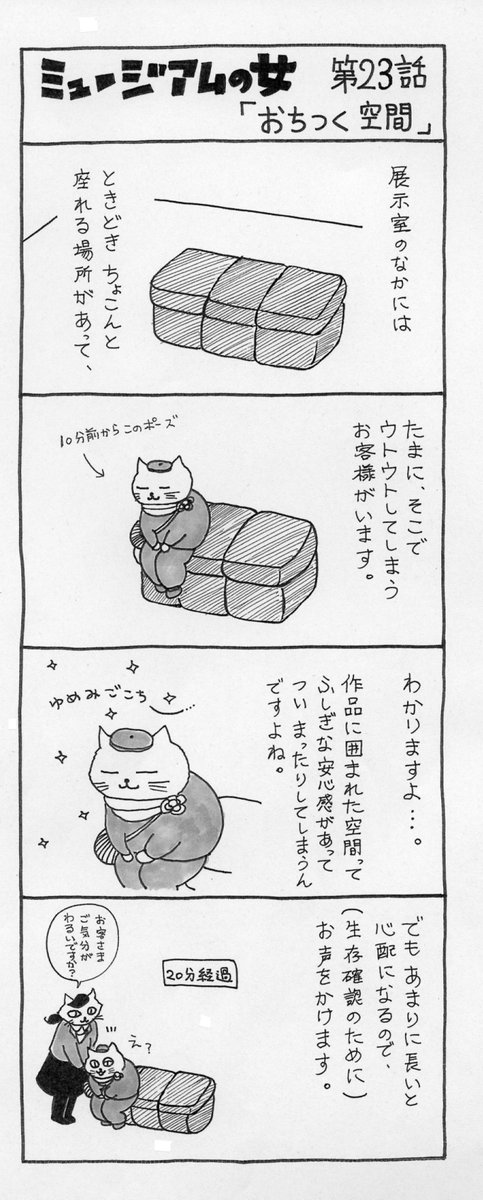 ミュージアムの女 第23話
「おちつく空間」
展示室のなかには
ときどき ちょこんと
座れる場所があって、
たまに、そこで
ウトウトしてしまう
お客様がいます。
10分前からこのポーズ
わかりますよ…。
作品に囲まれた空間って
ふしぎな安心感があって
ついまったりしてしまうん
ですよね。
ゆめみごこち
でもあまりに長いと
心配になるので、
(生存確認のために)
お声をかけます。
20分経過
お客さま
ご気分が
わるいですか?
え?